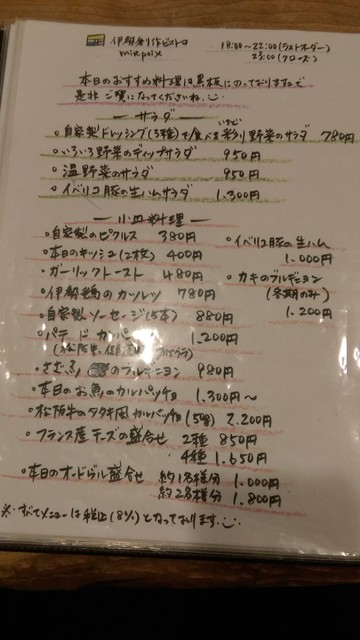 伊勢創作ビストロ
mirepoix
18:00〜22:00(ラストオーダー)
23:00(クローズ)
本日のおすすめ料理は黒板にのっておりますので
是非ご覧になってくださいね。
— サラダ —
・自家製ドレッシング(3種)で食べる彩り野菜のサラダ 780円
・いろいろ野菜のディップサラダ 950円
・温野菜のサラダ 950円
・イベリコ豚の生ハムサラダ 1.300円
— 小皿料理 —
・自家製のピクルス 380円
・イベリコ豚の生ハム
1.000円
・本日のキッシュ(2枚) 400円
・ガーリックトースト 480円
・カキのブルギニョン
(冬期のみ)
1.200円
・伊勢鶏のカツレツ 780円
・自家製ソーセージ(5本) 880円
・パテ ド カンパ 1.200円
(松阪牛、
・さざえ のブルギニヨン 980円
・本日のお魚のカルパッチョ 1.300円〜
・松阪牛のタタキ風カルパッチョ(50g) 2.200円
・フランス産チーズの盛合せ 2種 850円
4種 1.650円
・本日のオードブル盛合せ 約1名様分 1.000円
約2名様分 1.800円
※すべてメニューは税込(8%)となっております。